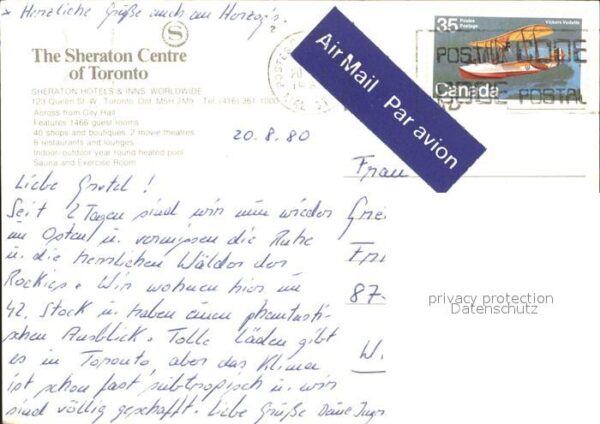 * Herzliche Grüße auch an Herzog's.
The Sheraton Centre
of Toronto
SHERATON HOTELS & INNS, WORLDWIDE
123 Queen St. W., Toronto, Ont. M5H 2M9 · Tel. (416) 361-1000
Across from City Hall
Features 1466 guest rooms
40 shops and boutiques, 2 movie theatres
6 restaurants and lounges
Indoor-outdoor year round heated pool
Sauna and Exercise Room
S
Air Mail Par avion
35
Postes
Postage
Vickers Vedette
Canada
POSTAL CODE
CODE POSTAL
20.8.80
Liebe Gretel!
Seit 2 Tagen sind wir nun wieder
im Osten u. vermissen die Ruhe
u. die herrlichen Wälder der
Rockies. Wir wohnen hier im
42. Stock u. haben einen phantasti-
schen Ausblick. Tolle Läden gibt
es in Toronto, aber das Klima
ist schon fast subtropisch u. wir
sind völlig geschafft. Liebe Grüße Deine
Frau
Gre
Fri
87-
W.
privacy protection
Datenschutz